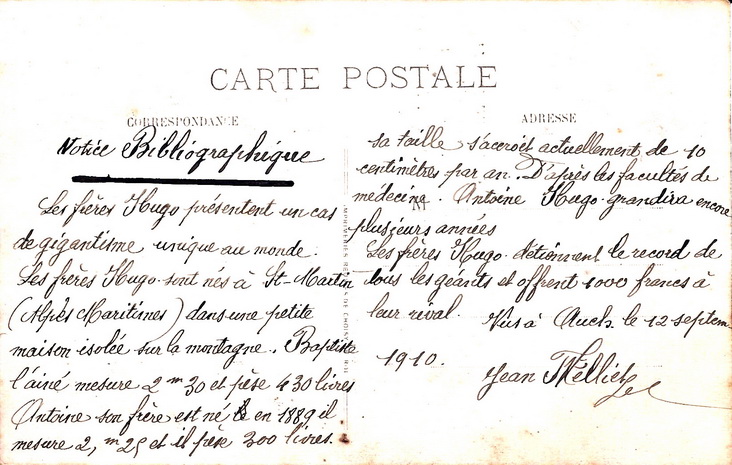 CARTE POSTALE
CORRESPONDANCE
Notice Bibliographique
Les frères Hugo présentent un cas
de gigantisme unique au monde.
Les frères Hugo sont nés à St-Martin
(Alpes Maritimes) dans une petite
maison isolée sur la montagne. Baptiste
l'ainé mesure 2 m 30 et pèse 430 livres
Antoine son frère est né en 1889 il
mesure 2, m 25 et il pèse 300 livres.
ADRESSE
sa taille s'accroit actuellement de 10
centimètres par an. D'après les facultés de
médecine. Antoine Hugo grandira encore
plusieurs années
Les frères Hugo détionnent le record de
tous les géants et offrent 1000 francs à
leur rival. Vus à Auch le 12 septem
1910.
Jean
M